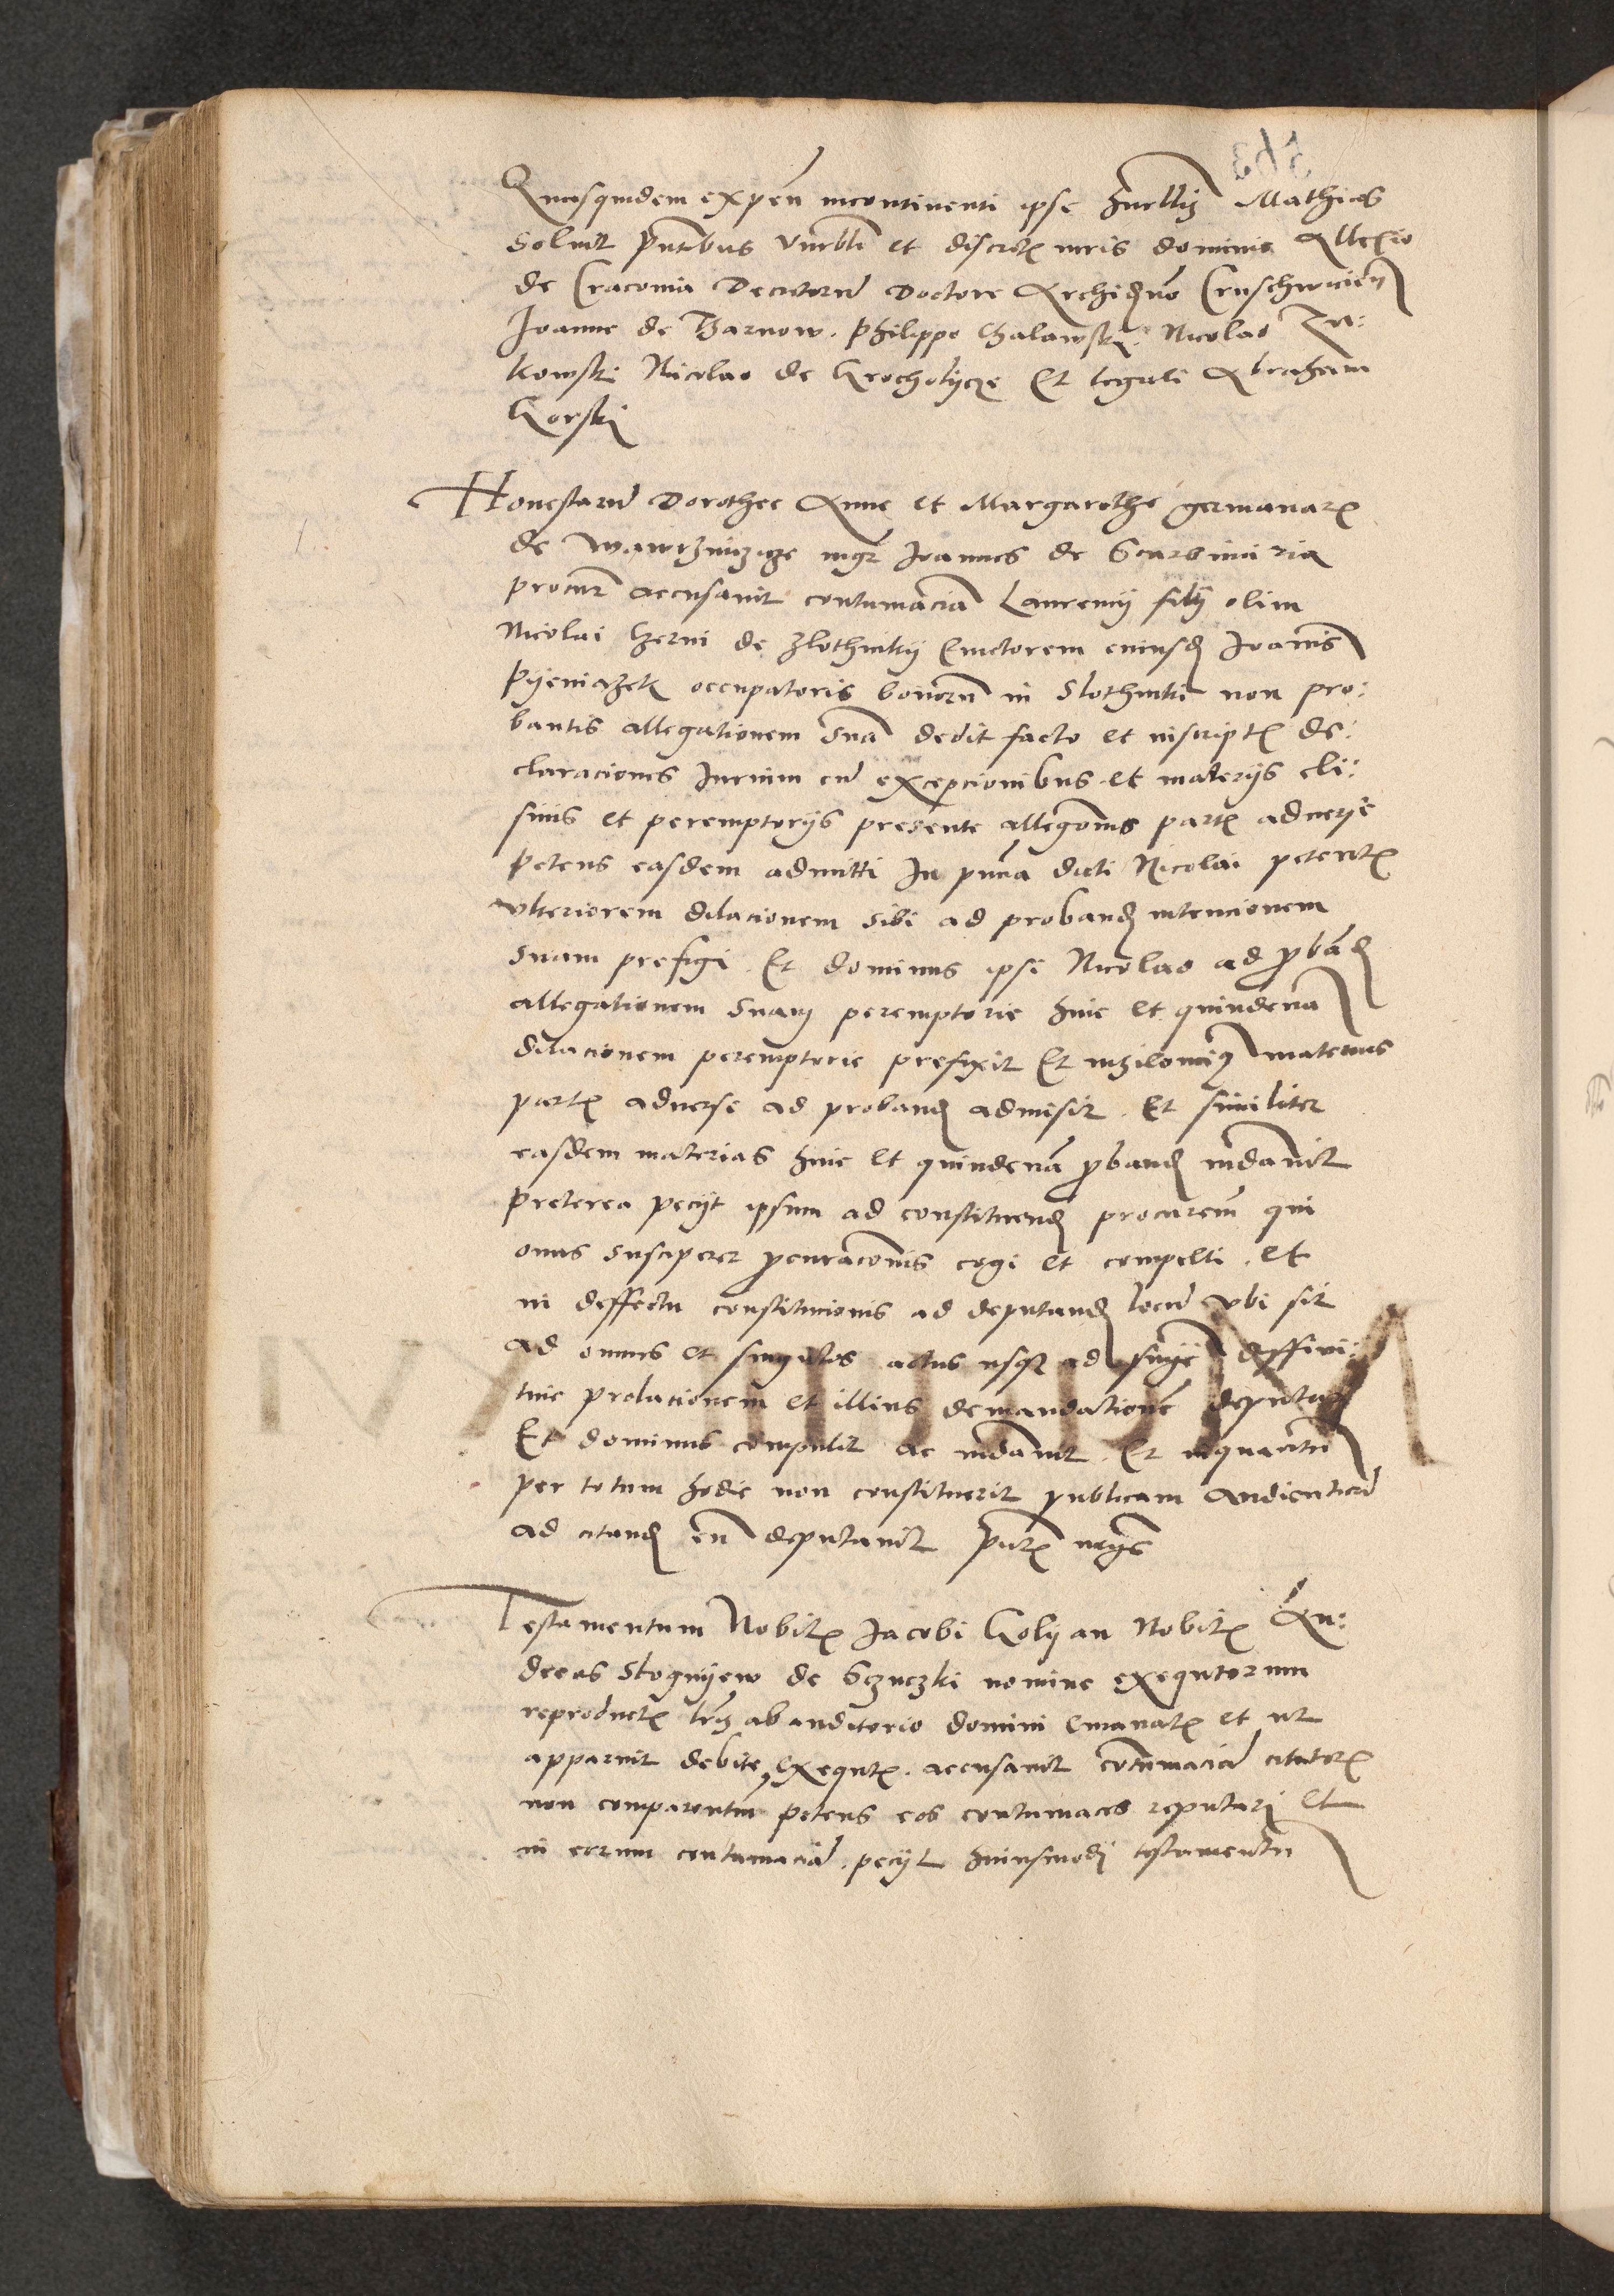 Quasquidem expen incontinenti ipse Mathias
Soluit pntibus et discret viris dominis Allexio
de Cracouia Decretorum Doctore Archidno Cruschwicien
Joanne de Tharnow. Philippo Chalawski. Nicolao Zu:
kowski Nicolao de Grocholycze Et legali Abraham
Gorski
Honestarum Dorothee Anne et Margarethe germanar
de mgr Joannes de Scarbimiria
procur accusauit contumaciam Laurency filij olim
Nicolai Czerni de Zlothniky Emctorem cuiusd Joannis
Pyeniazek occupatoris bonorum in Slothniki non pro:
bantis allegationem suam dedit facto et inscript de:
claraciones Jurium cum excepcionibus et materijs eli:
siuis et peremptorijs presente allegonis part aduerse
petens easdem admitti In pntia dicti Nicolai petent
vlteriorem dilacionem sibi ad proband intencionem
suam prefigi. Et dominus ipsi Nicolao ad proband
allegationem suam peremptorie hinc et quindenam
dilacionem peremptorie prefixit Et materias
part aduerse ad proband admisit. Et similiter
easdem materias hinc et quindenam proband mdauit
preterea pecijt ipsum ad constituend procurem qui
onus susciperet procuraconis cogi et compelli. et
in deffectu constitucionis ad deputand locum vbi sit
ad omnes et singulos actus usque ad sniae diffini:
tiue prolacionem et illius demandationem deputari
Et dominus compulit ac mdauit. Et inquantum
per totum hodie non constituerit publicam audienciam
ad citand eum deputauit
Testamentum Nobilis Jacobi Golyan Nobilis An:
dreas Stognyew de Sczuczki nomine exequtorum
reproduct lris ab auditorio domini emanat et ut
apparuit debite exequt. accusauit contumaciam citator
non comparentium petens eos contumaces reputari Et
in eorum contumaciam pecijt huiusmodi testamentum